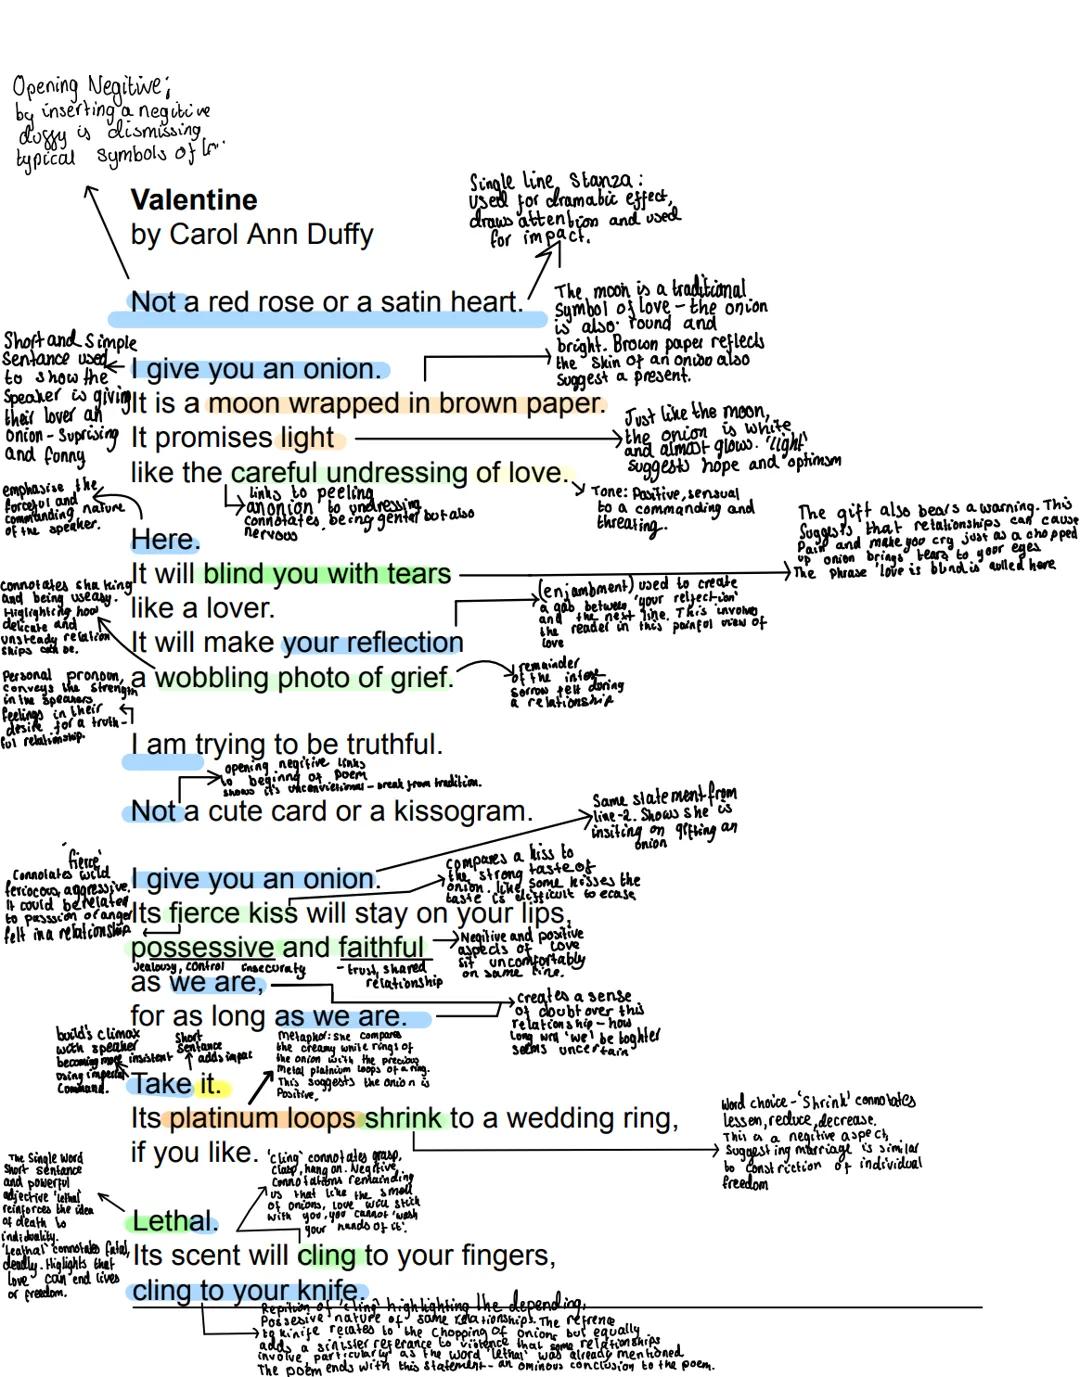 Opening Negitive;
by inserting a negitive
duffy is dismissing
typical symbols of
Valentine
by Carol Ann Duffy
Single line Stanza:
used for dramatic effect,
draws attention and used
for impact.
Not a red rose or a satin heart.
The moon is a traditional
Symbol of love – the onion
is also round and
bright. Brown paper reflects
the skin of an onion also
suggest a present.
Short and Simple
Sentance used
to show the
Speaker is giving
their lover an
onion - Suprising
and fonny
I give you an onion.
It is a moon wrapped in brown paper.
It promises light
like the careful undressing of love.
Just like the moon,
the onion is white
and almost glow. 'light'
suggests hope and optimism
links to peeling
an onion to undressing
connotates being gentel but also
nervous
Tone: Positive, sensual
to a commanding and
threating.
emphasise the
forceful and
commanding nature
of the speaker.
Here.
It will blind you with tears
like a lover.
It will make your reflection
a wobbling photo of grief.
The gift also bears a warning. This
Suggests that relationships can cause
Pain and make you cry just as a chopped
up onion brings tears to your eyes
The phrase 'love is blind is'    here
(enjambment) used to create
a gab between 'your relfection'
and the next line. This involves
the reader in this painful view of
love
connotates shaking
and being uneasy.
Higlighting how
delicate and
unsteady relation
ships can be.
remainder
of the intense
sorrow felt during
a relationship
Personal pronoun,
conveys the strength
in the speakers
feelings in their
desire for a truth-
ful relationship.
I am trying to be truthful.
opening negitive links
to beginng of poem
shows it's unconvictional - break from tradition.
Not a cute card or a kissogram.
Same statement from
line-2. Shows she is
insiting on gifting an
onion
'fierce'
Connotates wild
feriocous, aggressive.
It could be related
to passsion or anger
felt in a relationship
I give you an onion.
Its fierce kiss will stay on your lips,
possessive and faithful
as we are,
for as long as we are.
compares a kiss to
the strong taste of
onion. like some kisses the
taste is difficult to ecase
Negitive and positive
aspects of love
sit uncomfortably
on same line.
Jealousy, control insecuraty
- trust, shared
relationship
creates a sense
of doubt over this
relationship - how
long will 'we' be toghter
seems uncertain
build's climax
with speaker
becoming more insistent
using imperial
Command.
Short
Sentance
adds impac
Metaphor: she compares
the creamy white rings of
the onion with the precious
metal platnium loops of a ring.
This suggests the onion is
Positive.
Take it.
Its platinum loops shrink to a wedding ring,
if you like.
word choice - 'Shrink' connotates
lessen, reduce, decrease.
This is a negitive aspect,
Suggesting marriage is similar
to constriction of individual
freedom
'cling' connotates grasp,
clasp, hang on. Negitive
connotations remainding
us that like the smell
of onions, love will stick
with you, you cannot 'wash
your hands of it'.
The Single word
Short sentance
and powerful
adjective 'lethal'
reinforces the idea
of death to
indiduality.
'Leathal' connotates fatal,
deadly. Higlights that
love can end lives
or freedom.
Lethal.
Its scent will cling to your fingers,
cling to your knife.
Repition of 'cling' highlighting the depending,
Possesive nature of some relationships. The refrence
to kinife relates to the chopping of onions but equally
adds a sinister referance to violence that some relationships
involve, particularly as the word 'lethal' was already mentioned
The poem ends with this statement - an ominous conclusion to the poem.